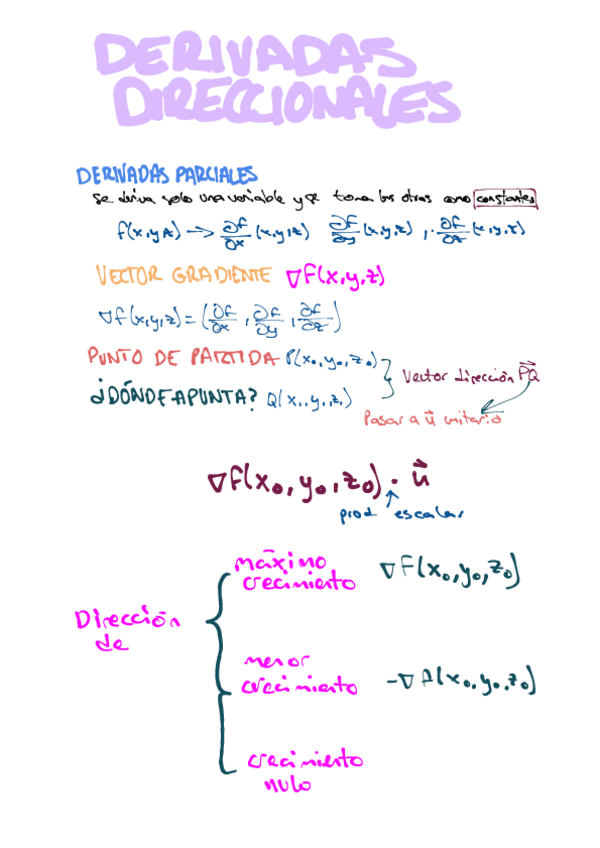 DERIVADAS
DIRECCIONALES
DERIVADAS PARCIALES
Se deriva solo una variable y se toma las otras como constantes
f(x,y,z) → ∂f/∂x (x,y,z) ∂f/∂y (x,y,z) , ∂f/∂z (x,y,z)
VECTOR GRADIENTE ∇f(x,y,z)
∇f(x,y,z) = (∂f/∂x , ∂f/∂y , ∂f/∂z)
PUNTO DE PARTIDA P(x₀,y₀,z₀)
¿DÓNDE APUNTA? Q(x₁,y₁,z₁)
} Vector dirección P⃗Q
Pasar a u⃗ unitario
∇f(x₀,y₀,z₀) · u⃗
prod escalar
Dirección
de
máximo
crecimiento ∇f(x₀,y₀,z₀)
menor
crecimiento -∇f(x₀,y₀,z₀)
crecimiento
nulo